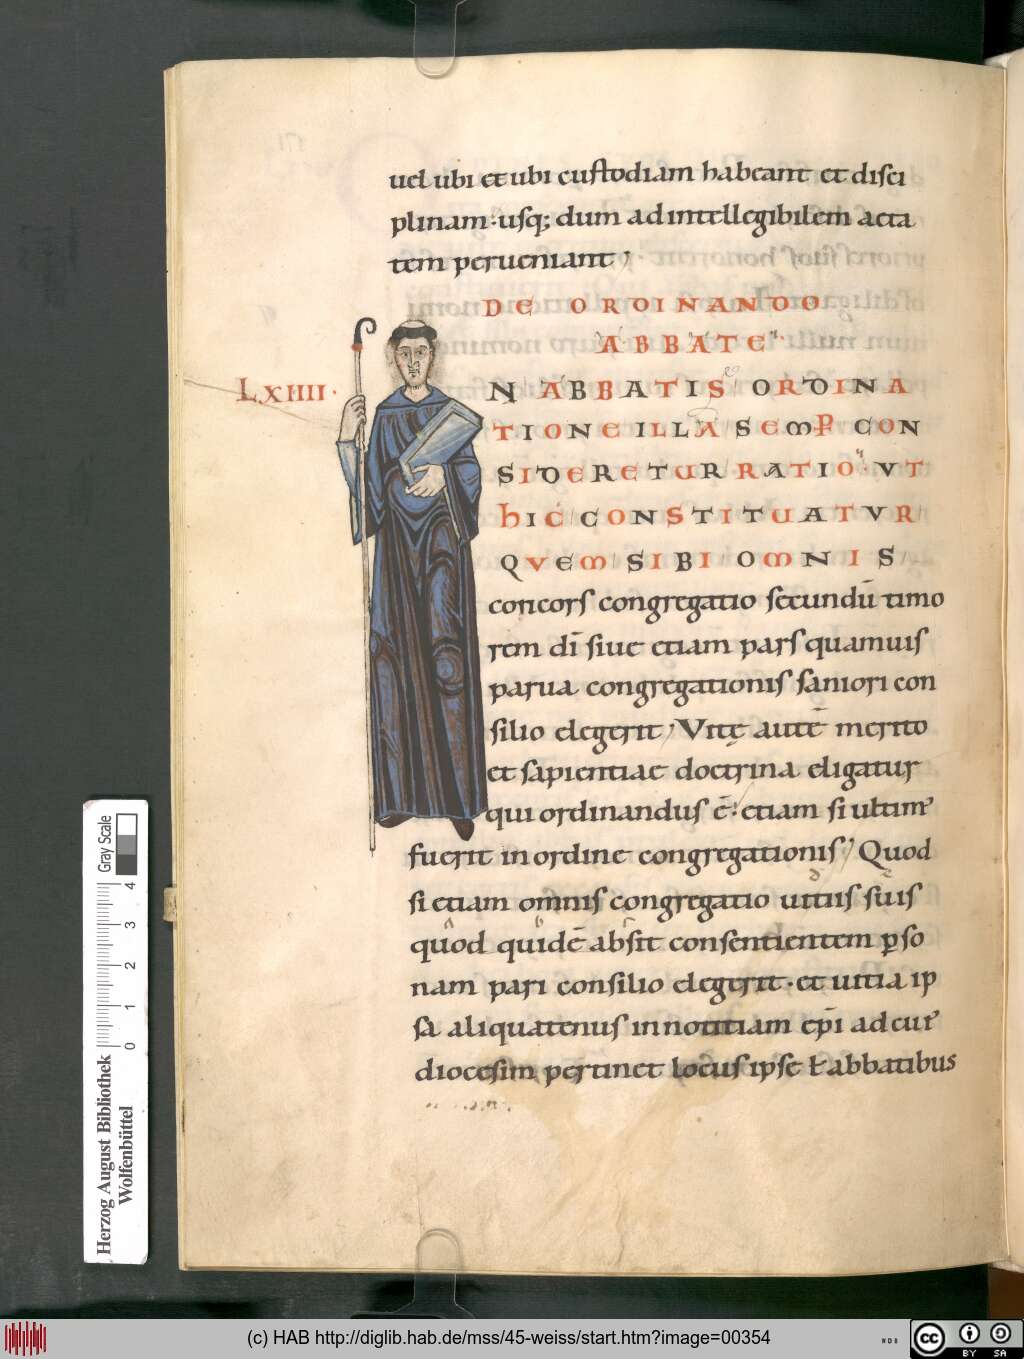 uel ubi et ubi custodiam habeant et disci
plinam· usq; dum ad intellegibilem aeta
tem perueniant;
DE ORDINANDO
ABBATE
LXIIII·
N ABBATIS ORDINA
TIONE ILLA SEMP̄ CON
SIDERETUR RATIO· VT
hIC CONSTITUATVR
QVEM SIBI OMNIS
concors congregatio secundū timo
rem dī siue etiam pars quamuis
parua congregationis saniori con
silio elegerit; Vitę autē merito
et sapientiae doctrina eligatur
qui ordinandus ē· etiam si ultim'
fuerit in ordine congregationis; Quod
si etiam omnis congregatio uitiis suis
quod quidē absit consentientem pso
nam pari consilio elegerit· et uitia ip
sa aliquatenus in notitiam ep̄i ad cui'
diocesim pertinet locus ipse ł abbatibus
Gray Scale
0 1 2 3 4
Herzog August Bibliothek
Wolfenbüttel
(c) HAB http://diglib.hab.de/mss/45-weiss/start.htm?image=00354
WDB
cc
BY SA